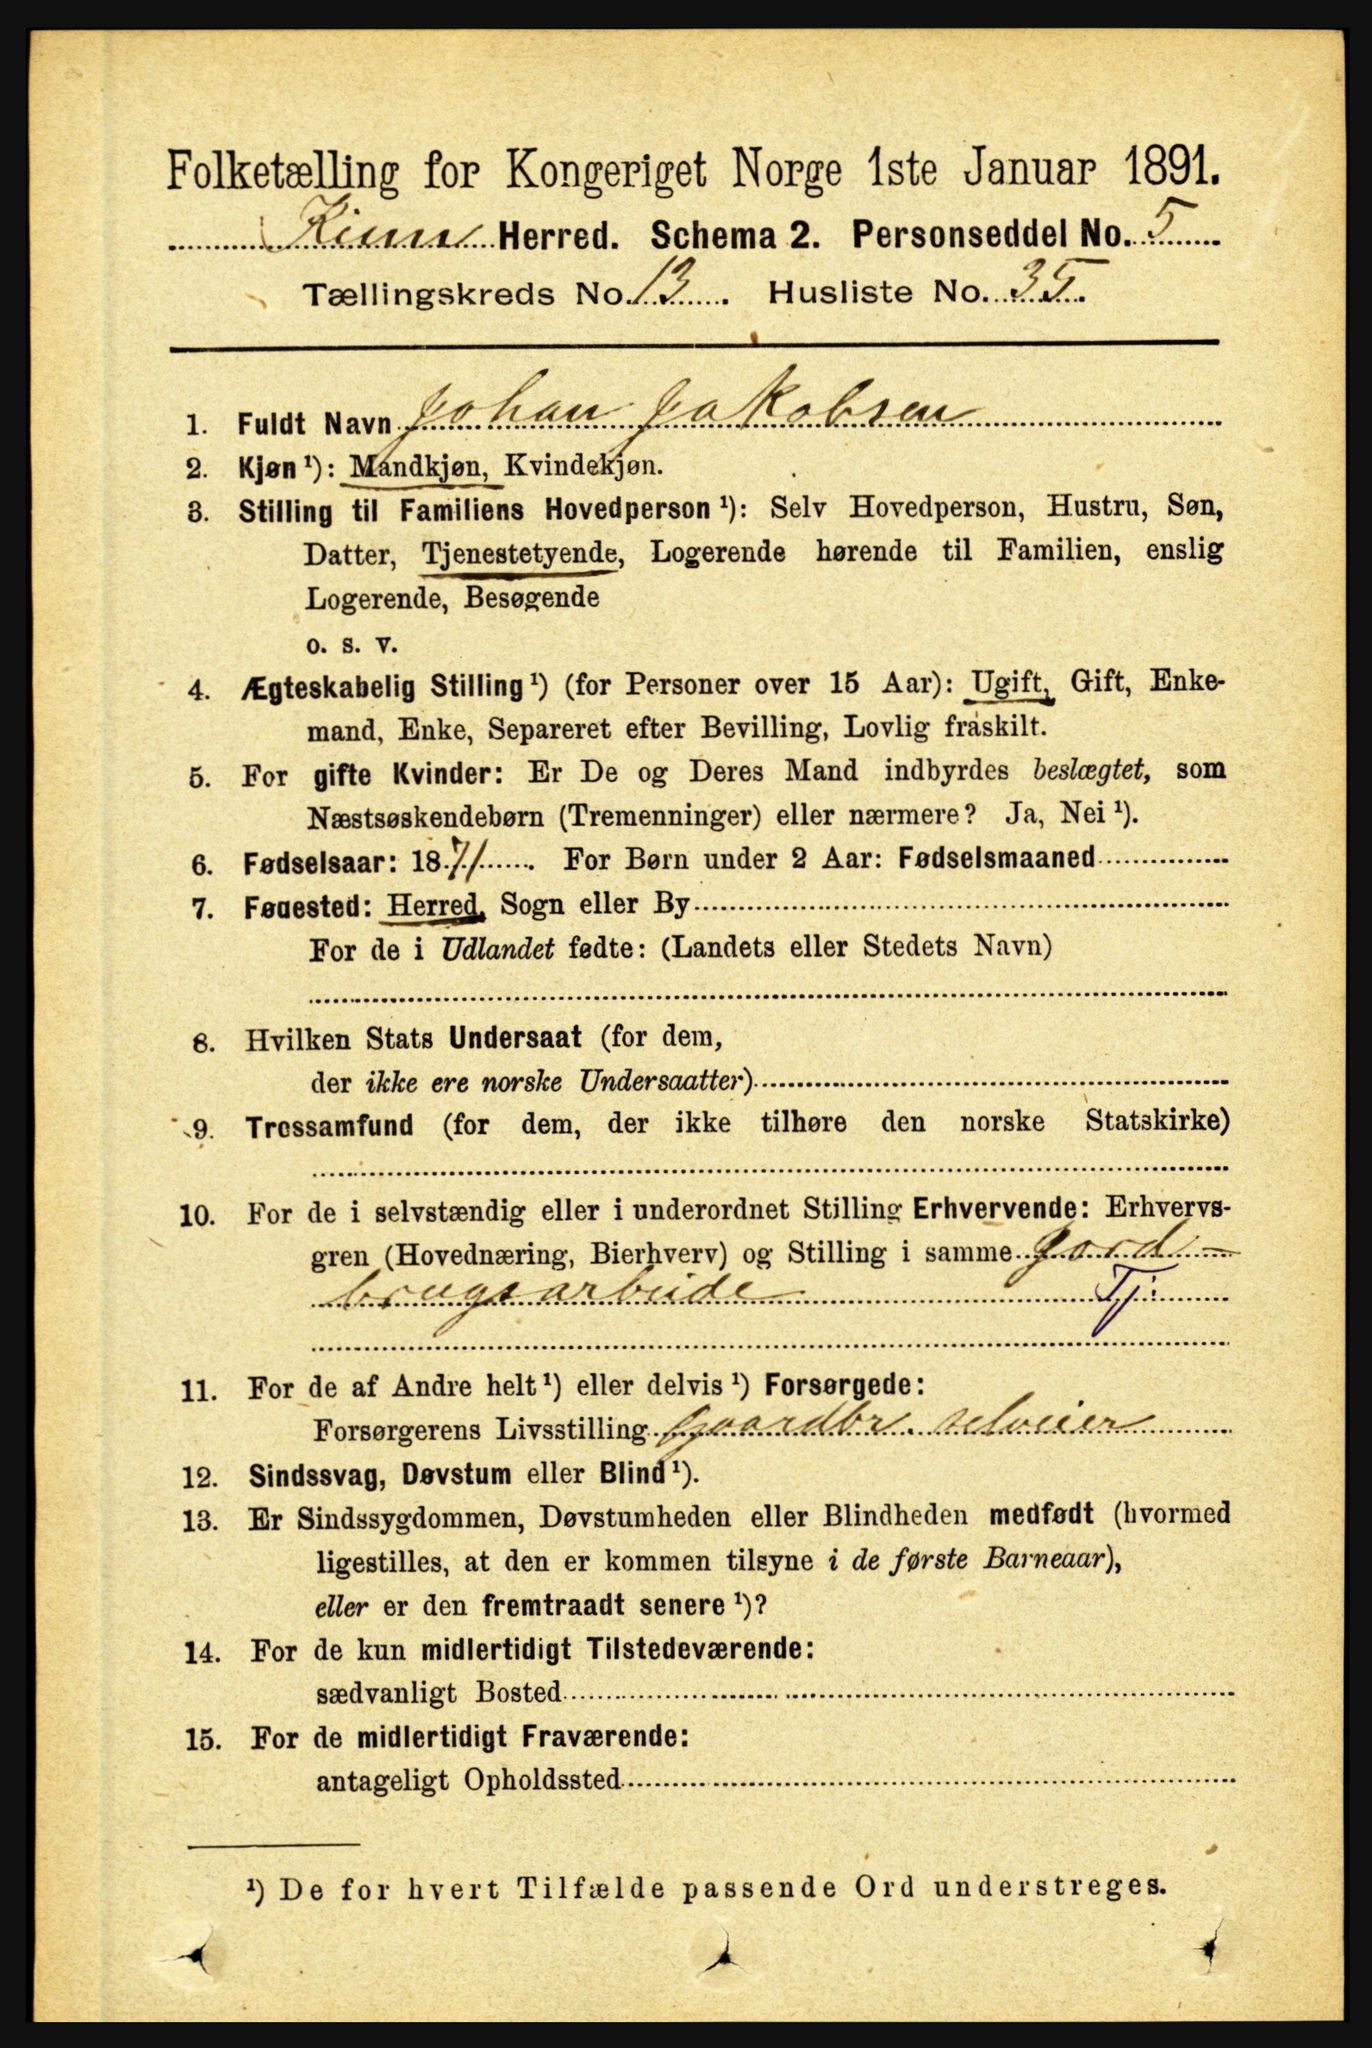 Folketælling for Kongeriget Norge 1ste Januar 1891.
Kinn Herred. Schema 2. Personseddel No. 5
Tællingskreds No. 13. Husliste No. 35.
1. Fuldt Navn Johan Jakobsen
2. Kjøn¹): Mandkjøn, Kvindekjøn.
3. Stilling til Familiens Hovedperson¹): Selv Hovedperson, Hustru, Søn,
Datter, Tjenestetyende, Logerende hørende til Familien, enslig
Logerende, Besøgende
o. s. v.
4. Ægteskabelig Stilling¹) (for Personer over 15 Aar): Ugift, Gift, Enke-
mand, Enke, Separeret efter Bevilling, Lovlig fraskilt.
5. For gifte Kvinder: Er De og Deres Mand indbyrdes beslægtet, som
Næstsøskendebørn (Tremenninger) eller nærmere? Ja, Nei¹).
6. Fødselsaar: 1871. For Børn under 2 Aar: Fødselsmaaned
7. Fødested: Herred, Sogn eller By
For de i Udlandet fødte: (Landets eller Stedets Navn)
8. Hvilken Stats Undersaat (for dem,
der ikke ere norske Undersaatter)
9. Trossamfund (for dem, der ikke tilhøre den norske Statskirke)
10. For de i selvstændig eller i underordnet Stilling Erhvervende: Erhvervs-
gren (Hovednæring, Bierhverv) og Stilling i samme Gard-
brugsarbeide Tj.
11. For de af Andre helt¹) eller delvis¹) Forsørgede:
Forsørgerens Livsstilling Gaardbr. selveier
12. Sindssvag, Døvstum eller Blind¹).
13. Er Sindssygdommen, Døvstumheden eller Blindheden medfødt (hvormed
ligestilles, at den er kommen tilsyne i de første Barneaar),
eller er den fremtraadt senere¹)?
14. For de kun midlertidigt Tilstedeværende:
sædvanligt Bosted
15. For de midlertidigt Fraværende:
antageligt Opholdssted
¹) De for hvert Tilfælde passende Ord understreges.